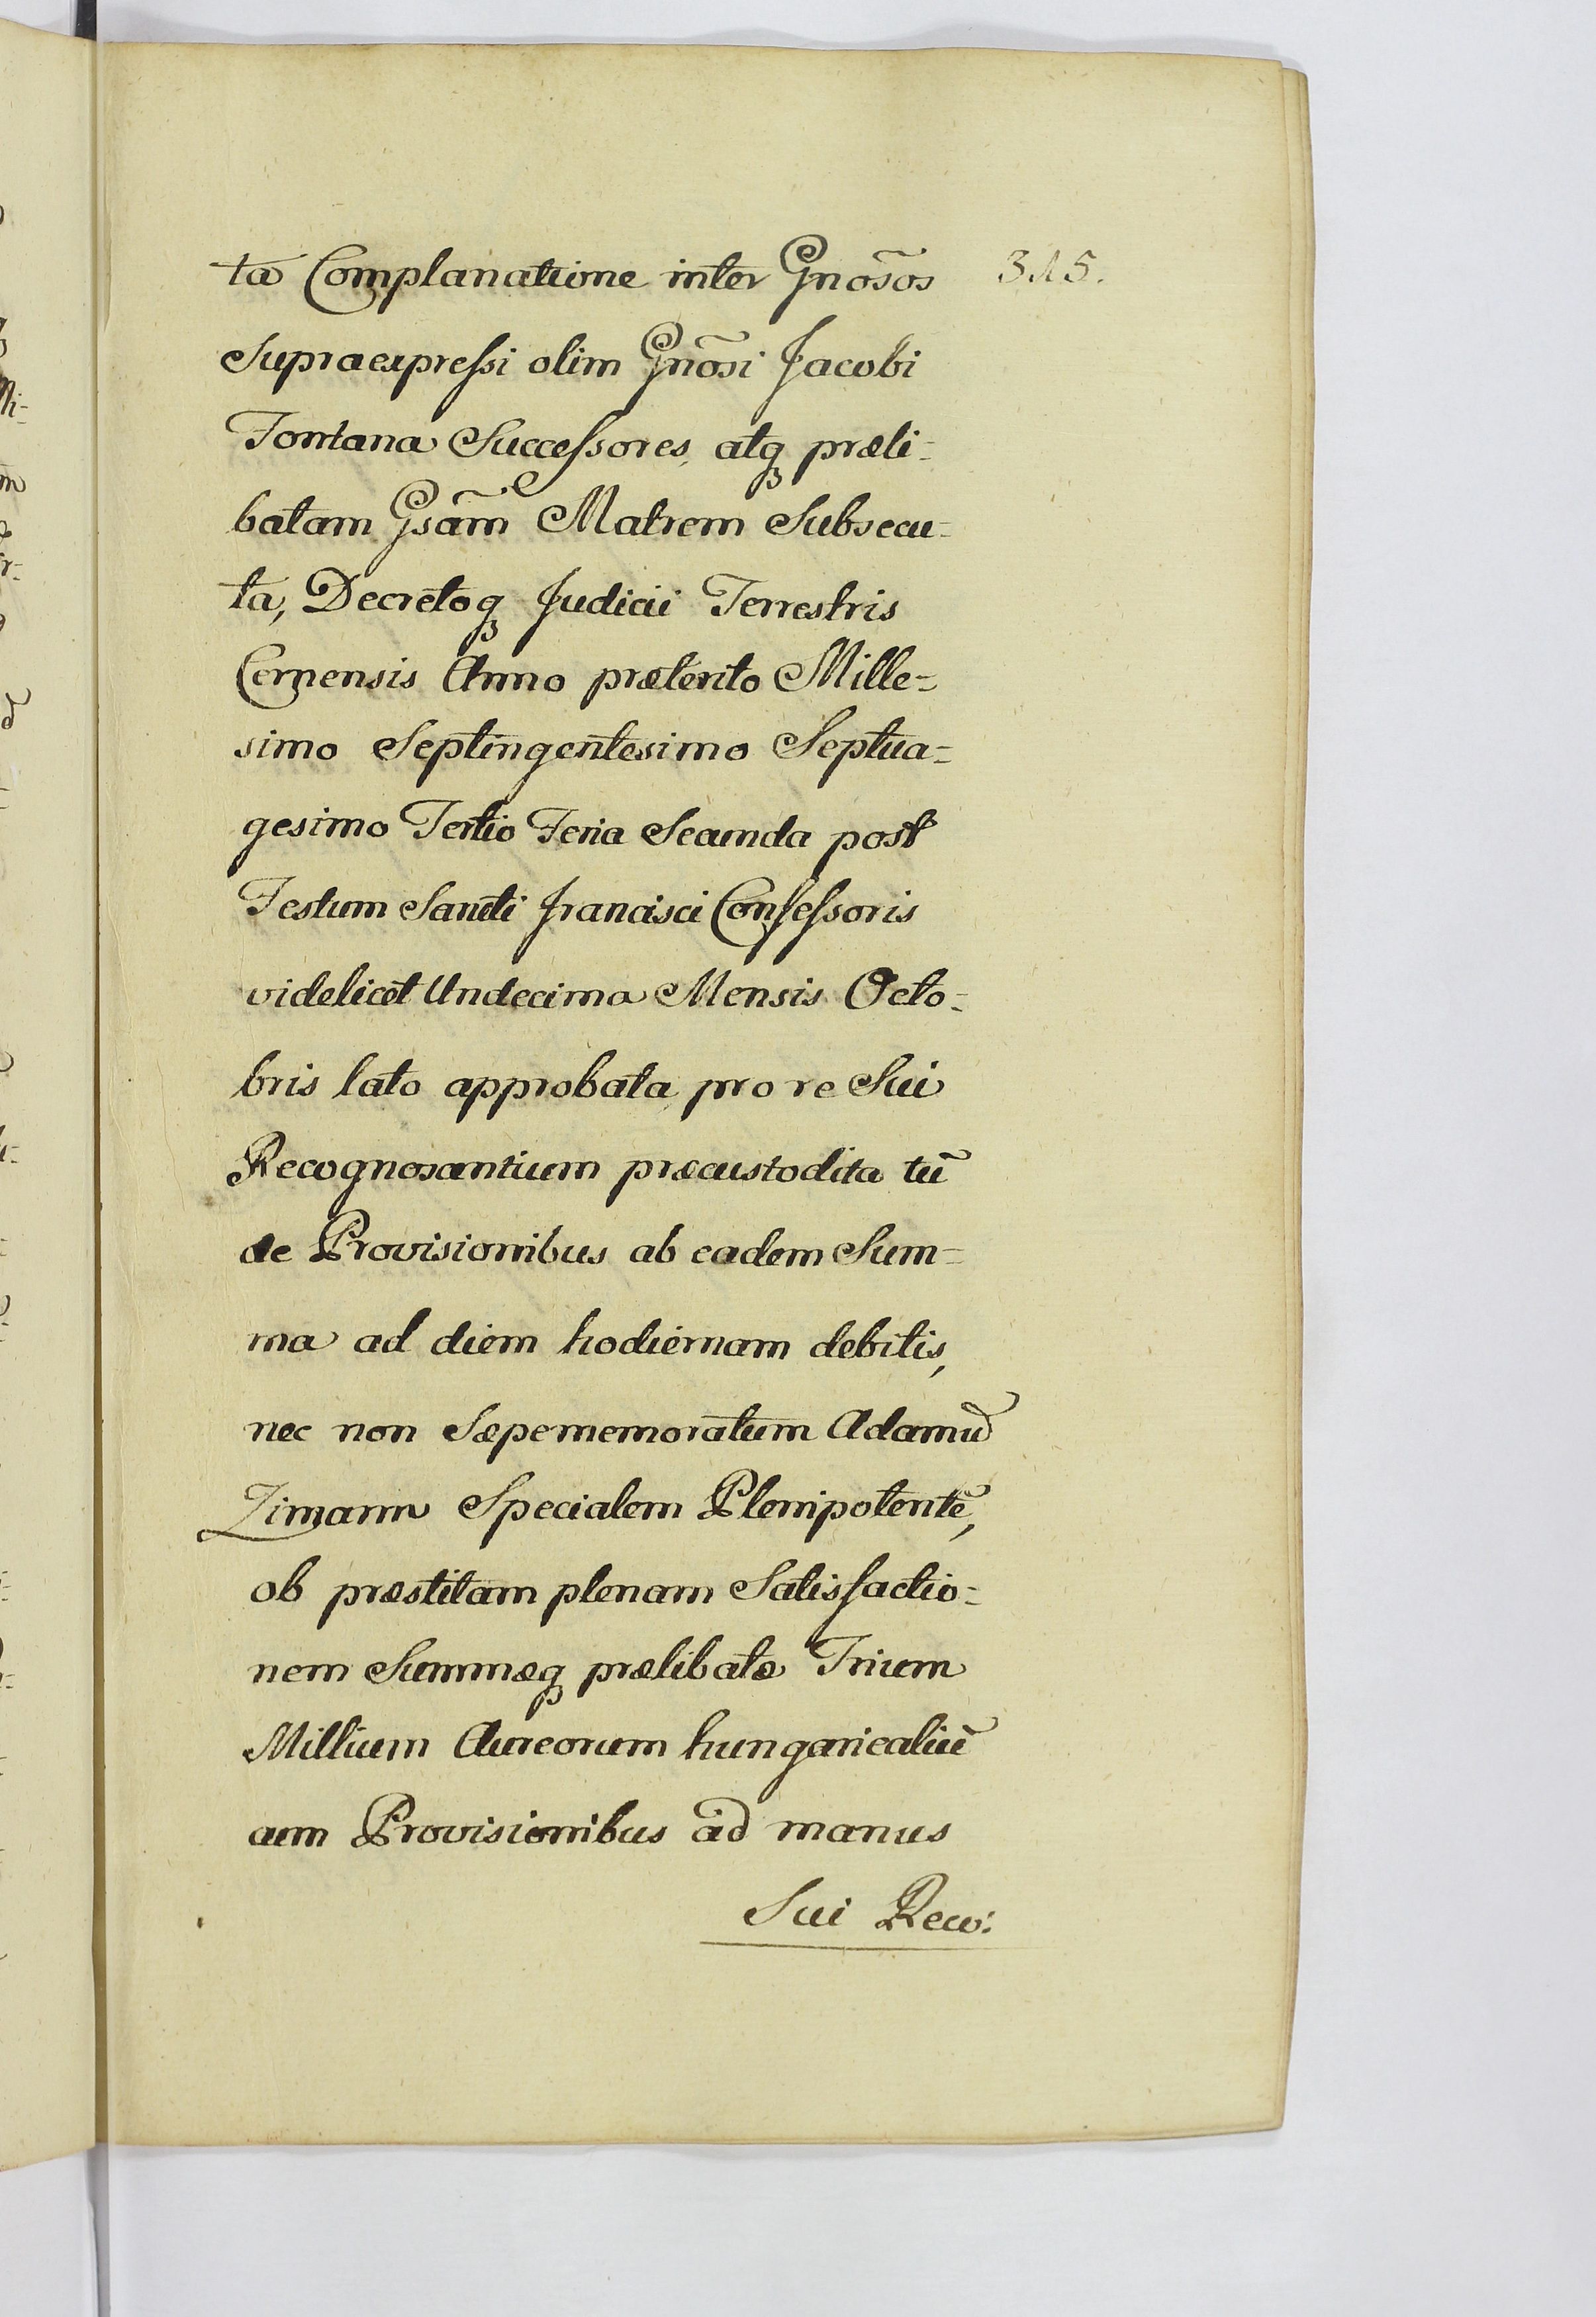 ta Complanatione inter Gnõsos 315.
Supraexpreſsi olim Gnõsi Jacobi
Fontana Succeſsores, atq præli-
batam Gsãm Matrem Subsecu-
ta, Decretoq Judicii Terrestris
Cernensis Anno præterito Mille-
simo Septingentesimo Septua-
gesimo Tertio Feria Secunda post
Festum Sancti Francisci Confeſsoris
videlicet Undecima Mensis Octo-
bris lato approbata, pro re Sui
Recognoscentium præcustodita tũ
de Provisionibus ab eadem Sum-
ma ad diem hodiernam debitis,
nec non Sæpememoratum Adamũ
Zimann Specialem Plenipotentẽ,
ob præstitam plenam Satisfactio-
nem Summæq prælibatæ Trium
Millium Aureorum hungaricaliũ
cum Provisionibus ad manus
Sui Reco: